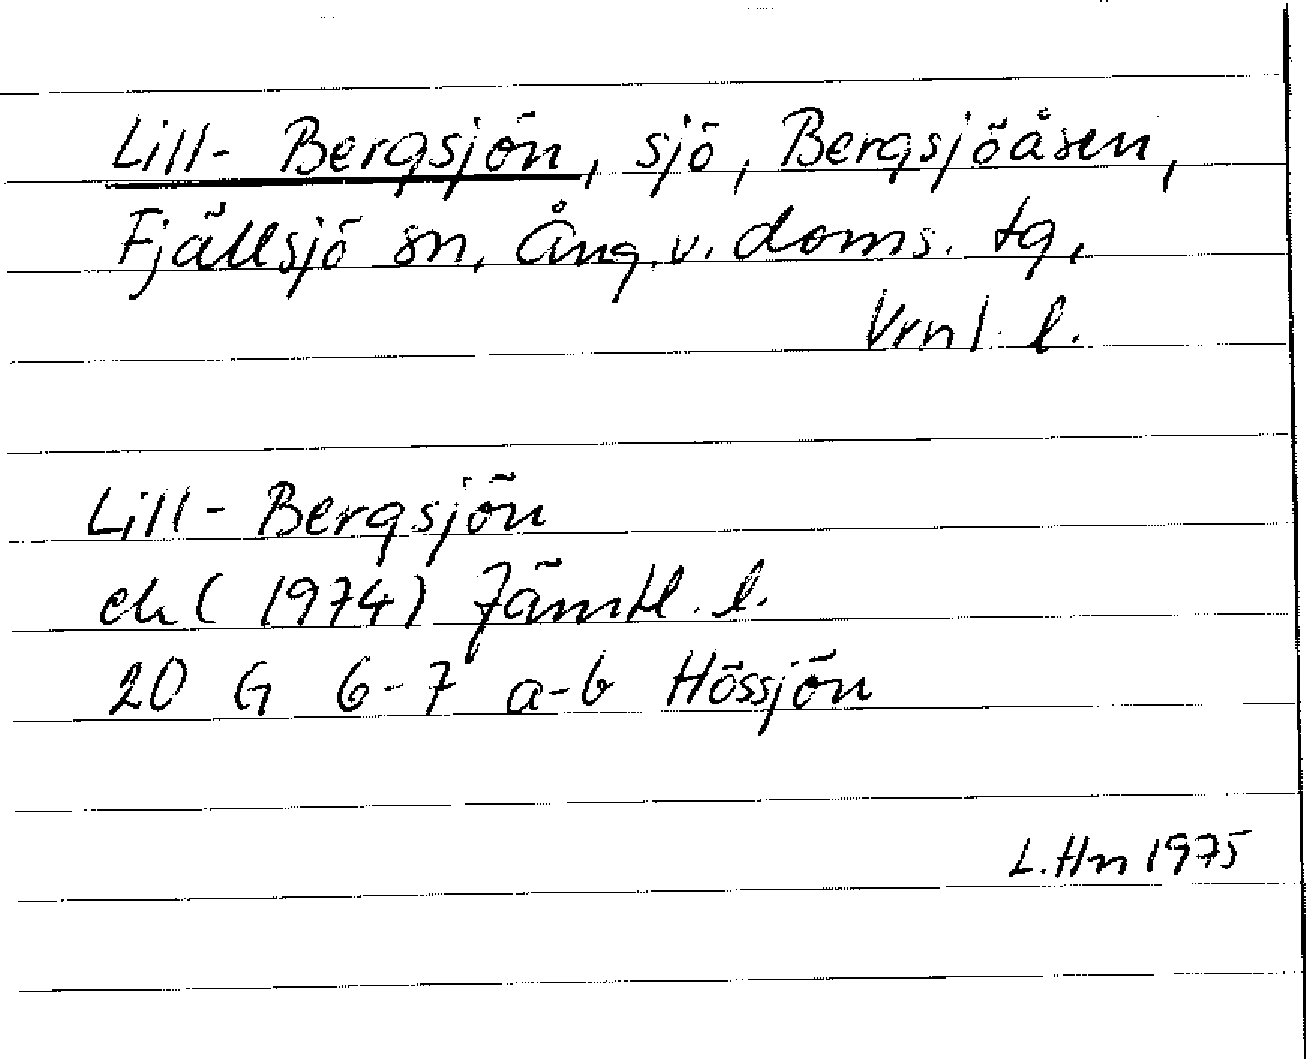 Lill-Bergsjön, sjö, Bergsjöåsen,
Fjällsjö sn, Ång. v. doms. tg,
Vrnl. l.
Lill-Bergsjön
ek (1974) Jämtl. l.
20 G 6-7 a-b Hössjön
L.Hn 1975